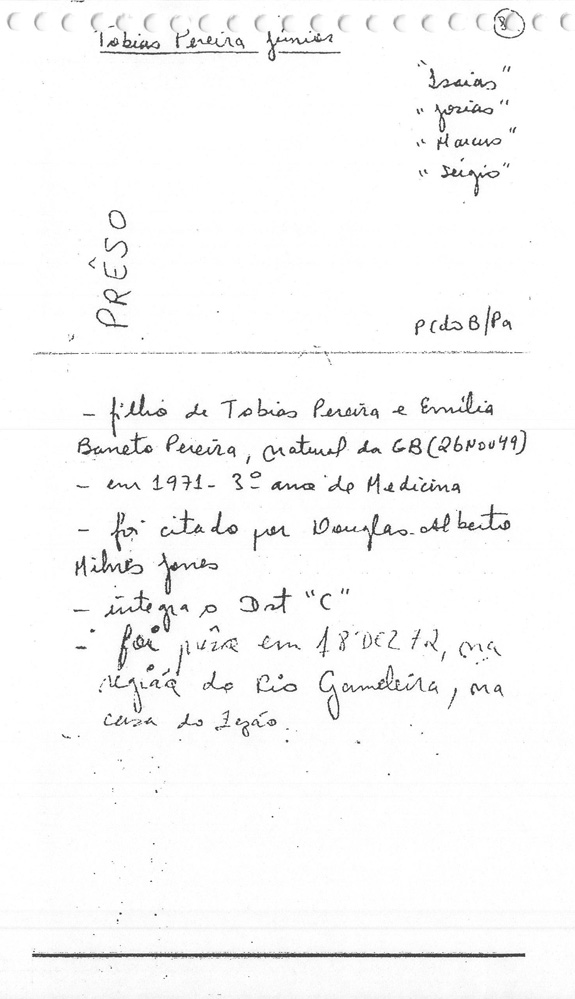 8
Tobias Pereira Júnior
"Isaias"
"Josias"
"Marcus"
"Sérgio"
PRÊSO
PCdoB/Pa
- filho de Tobias Pereira e Emília
Barreto Pereira, natural da GB (26NOV49)
- em 1971 - 3º ano de Medicina
- foi citado por Douglas Alberto
Milnes Jones
- integra o Dst "C"
- foi prêso em 18 DEZ 72, na
região do Rio Gameleira, na
casa do Zezão.